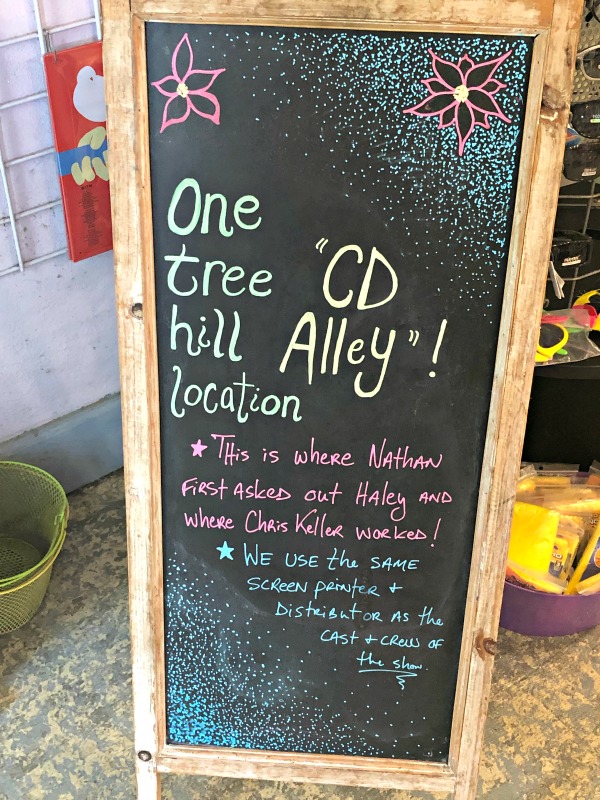 One
tree
hill
location
"CD
Alley"!
★ THis is where NatHan
First Asked out Haley and
where Chris Keller worked!
★ We use the same
screen printer +
Distributor as the
cast + crew of
the show